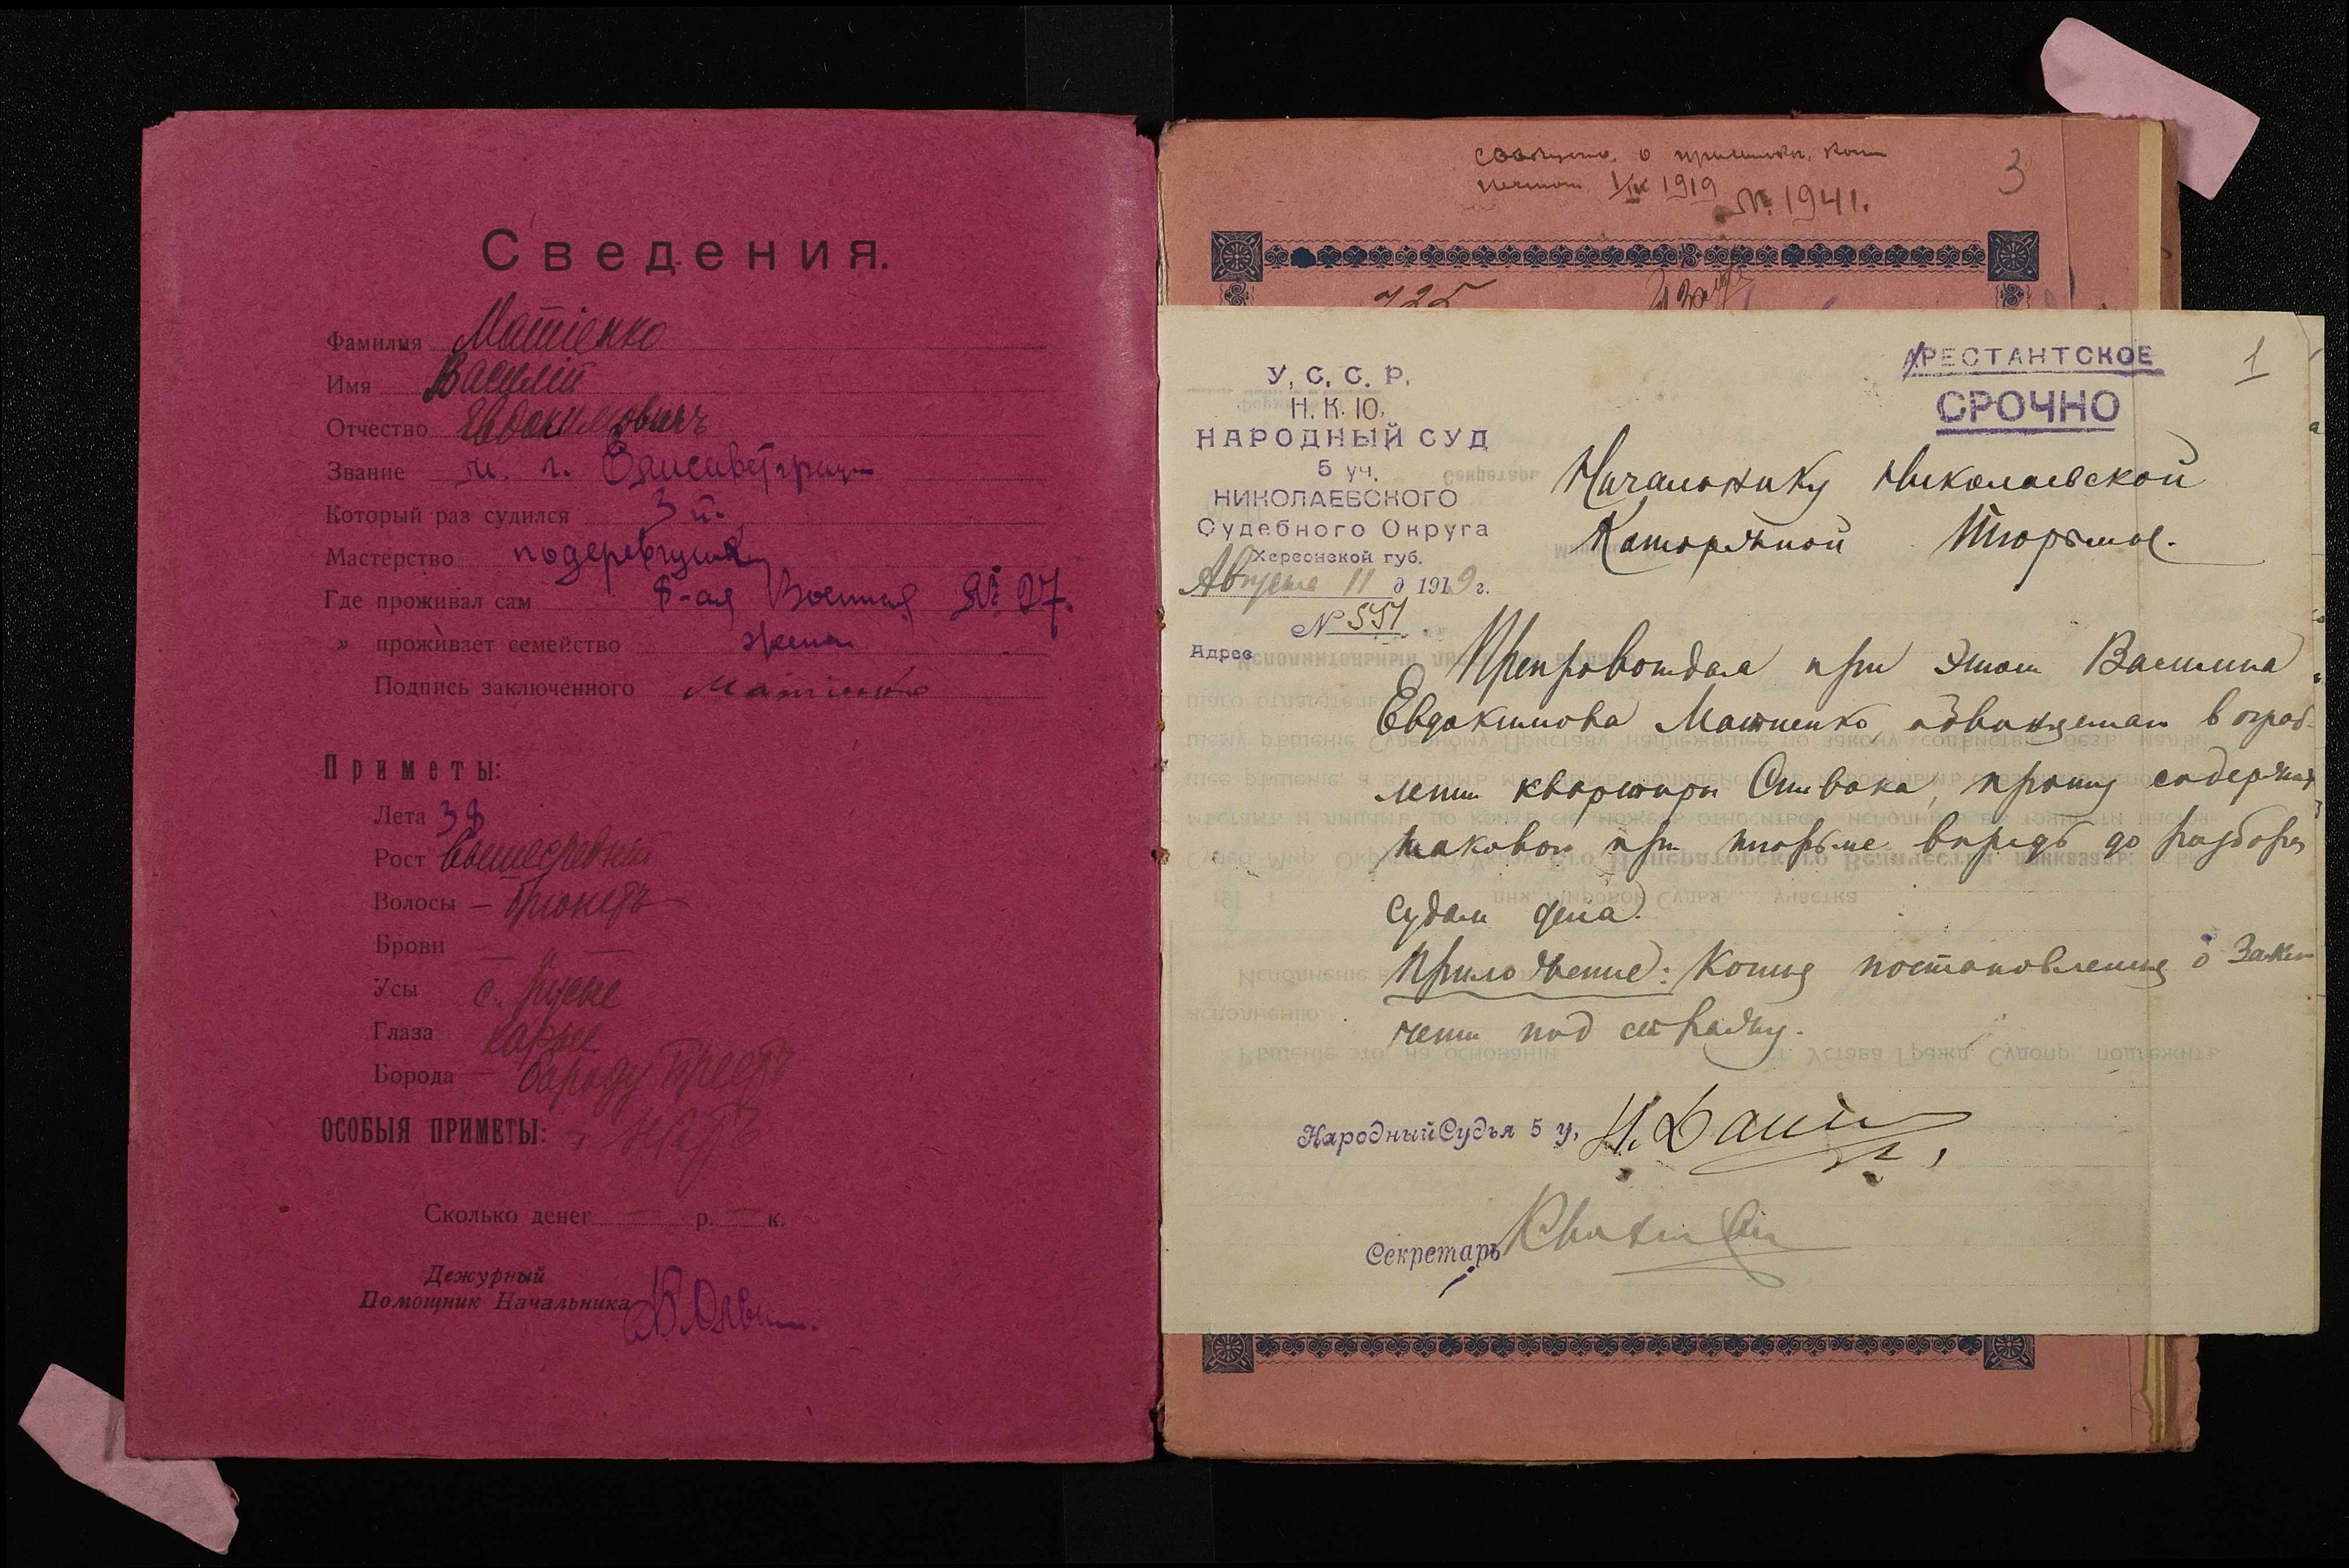 Сведения.
Фамилия Матіенко
Имя Василій
Отчество Евдокимовичъ
Звание м. г. Елисаветград
Который раз судился 3 й.
Мастерство
Где проживал сам 8-ая Военная № 27.
» проживает семейство жена
Подпись заключенного Матіенко
Приметы:
Лета 38
Рост вышесредній
Волосы — брюнетъ
Брови — " —
Усы с. русые
Глаза карые
Борода — бороду бреетъ
ОСОБЫЯ ПРИМЕТЫ: - нетъ
Сколько денег — р. — к.
Дежурный
Помощник Начальника
3
1/IX 1919 № 1941.
725
АРЕСТАНТСКОЕ
СРОЧНО
1
У. С. С. Р.
Н. К. Ю.
НАРОДНЫЙ СУД
5 уч.
НИКОЛАЕВСКОГО
Судебного Округа
Херсонской губ.
Августа 11 д 1919 г.
№ 551
Адрес
Начальнику Николаевской
Каторжной Тюрьмы.
Препровождая при этом Василия
Евдокимова Матиенко, обвиняемаго в ограб
лении квартиры Спивака, прошу содержать
такового при тюрьме впредь до разбора
судом дела.
Приложение: Копия постановления о заклю
чении под стражу.
Народный Судья 5 у,
Секретарь